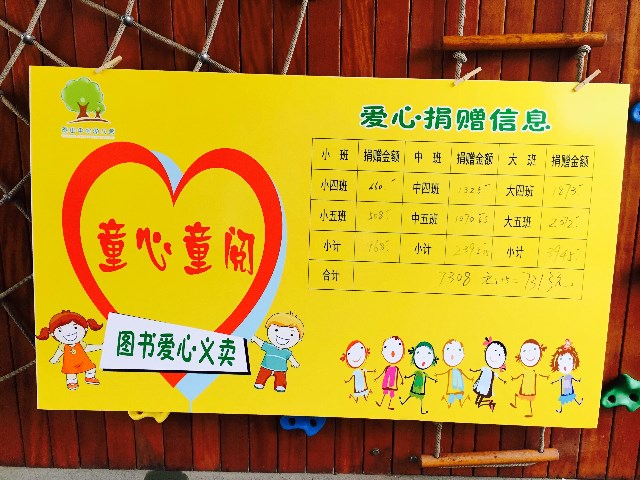 爱心捐赠信息
小 班 捐赠金额 中 班 捐赠金额 大 班 捐赠金额
小四班 260 中四班 1325 大四班 1873
小五班 508 中五班 大五班
小计 768 小计 小计 3945
合计 7308
童心童阅
图书爱心义卖